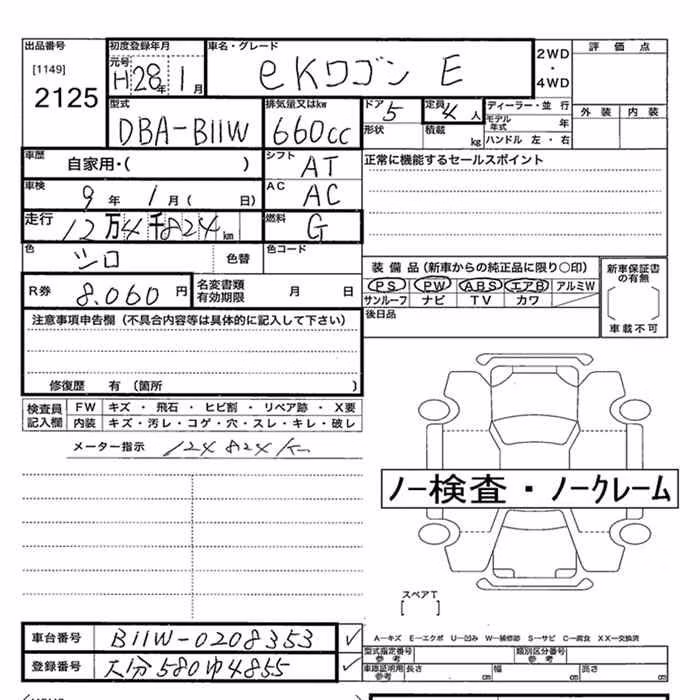 出品番号
[1149]
2125
初度登録年月
元号 H28年 1月
車名・グレード
eKワゴン E
2WD
・
4WD
評価点
外装 内装
型式
DBA-B11W
排気量又はkw
660cc
ドア 5
形状
定員 4人
積載 kg
ディーラー・並行
モデル年式 年
ハンドル 左・右
車歴
自家用・( )
シフト AT
正常に機能するセールスポイント
車検
9年 1月( 日)
AC AC
走行 12万4千824km
燃料 G
色 シロ 色替
色コード
装備品(新車からの純正品に限り○印)
PS PW ABS エアB アルミW
サンルーフ ナビ TV カワ
新車保証書の有無
車載不可
R券 8.060円
名変書類有効期限 月 日
後日品
注意事項申告欄(不具合内容等は具体的に記入して下さい)
修復歴 有(箇所 )
検査員記入欄
FW キズ・飛石・ヒビ割・リペア跡・X要
内装 キズ・汚レ・コゲ・穴・スレ・キレ・破レ
メーター指示 124824K
ノー検査・ノークレーム
スペアT
[ ]
車台番号 B11W-0208353 ✓
登録番号 大分580ゆ4855 ✓
A―キズ E―エクボ U―凹み W―補修跡 S―サビ C―腐食 XX―交換済
型式指定番号 参考
類別区分番号 参考
車庫証明用 参考 長さ cm 幅 cm 高さ cm